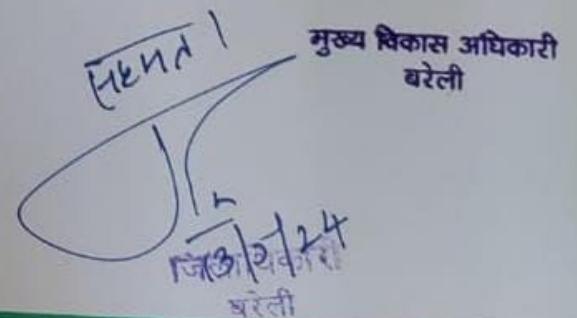 सहमत।
मुख्य विकास अधिकारी
बरेली
जिलाधिकारी
बरेली